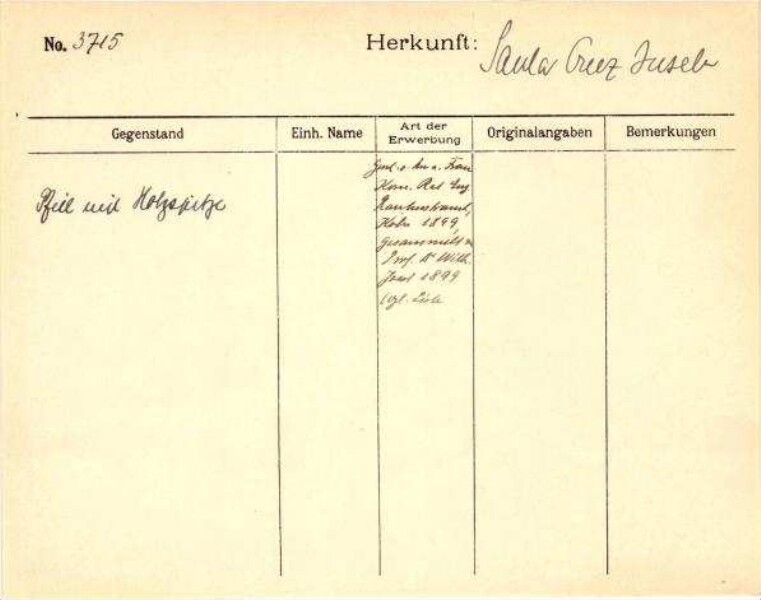 No. 3715 Herkunft: Santa Cruz Inseln
Gegenstand Einh. Name Art der Erwerbung Originalangaben Bemerkungen
Pfeil mit Holzspitze
Gesch. v. Frau
Kom. Rat Eug.
Rautenstrauch,
Köln 1899,
gesammelt v.
Prof. Dr Wilh.
Joest 1899
vgl. Liste